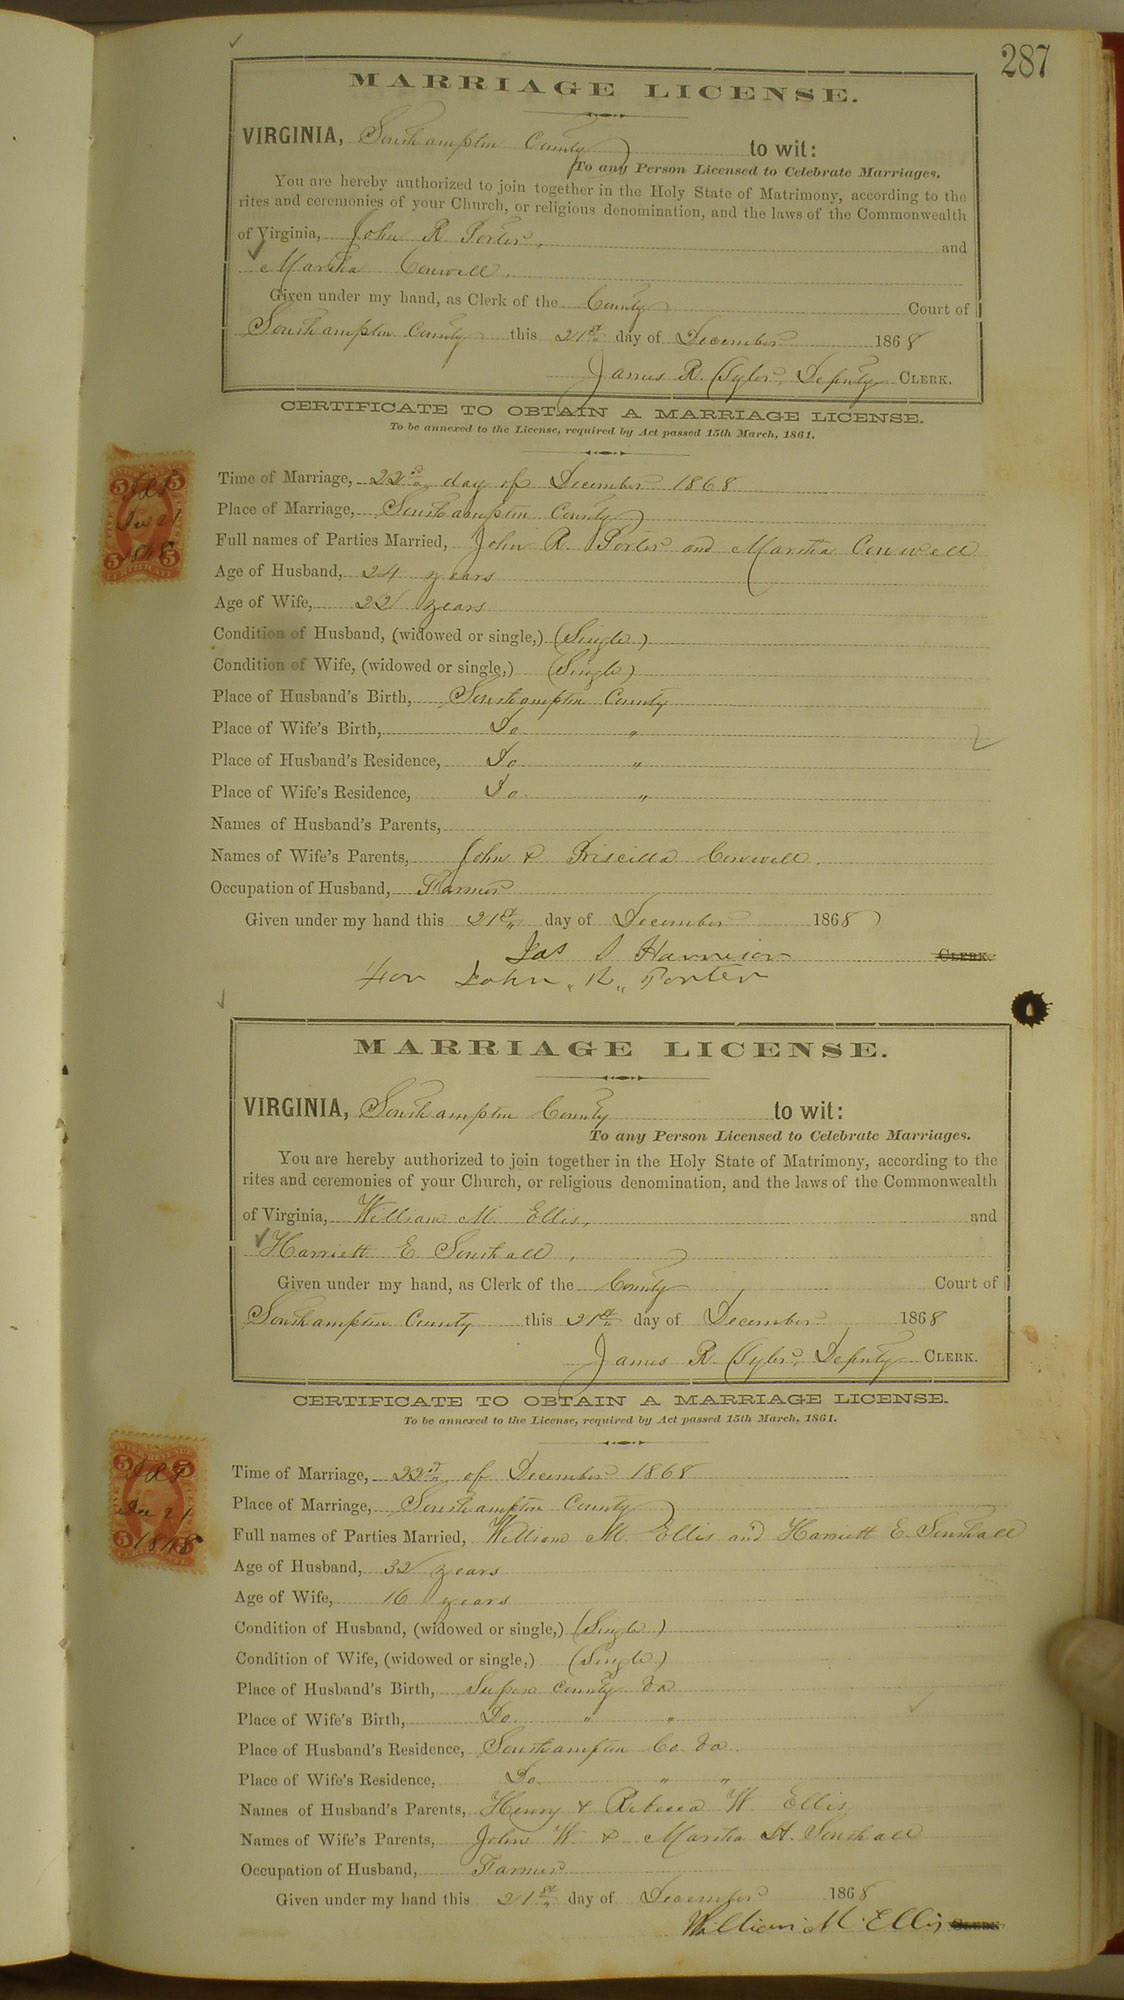 287
MARRIAGE LICENSE.
VIRGINIA, Southampton County to wit:
To any Person Licensed to Celebrate Marriages.
You are hereby authorized to join together in the Holy State of Matrimony, according to the
rites and ceremonies of your Church, or religious denomination, and the laws of the Commonwealth
of Virginia, John R Porter, and
Martha Conwell.
Given under my hand, as Clerk of the County Court of
Southampton County this 21st day of December 1868
James R. Tyler, Deputy CLERK.
CERTIFICATE TO OBTAIN A MARRIAGE LICENSE.
To be annexed to the License, required by Act passed 15th March, 1861.
5 5
Dec 21
1868
Time of Marriage, 22nd day of December 1868
Place of Marriage, Southampton County
Full names of Parties Married, John R. Porter and Martha Conwell
Age of Husband, 24 years
Age of Wife, 22 years
Condition of Husband, (widowed or single,) (Single)
Condition of Wife, (widowed or single,) (Single)
Place of Husband's Birth, Southampton County
Place of Wife's Birth, Do "
Place of Husband's Residence, Do "
Place of Wife's Residence, Do "
Names of Husband's Parents,
Names of Wife's Parents, John & Priscilla Conwell.
Occupation of Husband, Farmer
Given under my hand this 21st day of December 1868
Jas D Harrison CLERK.
for John "R" Porter
MARRIAGE LICENSE.
VIRGINIA, Southampton County to wit:
To any Person Licensed to Celebrate Marriages.
You are hereby authorized to join together in the Holy State of Matrimony, according to the
rites and ceremonies of your Church, or religious denomination, and the laws of the Commonwealth
of Virginia, William M. Ellis, and
Harriett E Southall,
Given under my hand, as Clerk of the County Court of
Southampton County this 21st day of December 1868
James R. Tyler, Deputy CLERK.
CERTIFICATE TO OBTAIN A MARRIAGE LICENSE.
To be annexed to the License, required by Act passed 15th March, 1861.
5 5
Dec 21
1868
Time of Marriage, 22nd of December 1868
Place of Marriage, Southampton County
Full names of Parties Married, William M. Ellis and Harriett E. Southall
Age of Husband, 32 years
Age of Wife, 16 years
Condition of Husband, (widowed or single,) (Single)
Condition of Wife, (widowed or single,) (Single)
Place of Husband's Birth, Sussex County Va
Place of Wife's Birth, Do. " "
Place of Husband's Residence, Southampton Co. Va.
Place of Wife's Residence, Do. " "
Names of Husband's Parents, Henry & Rebecca W Ellis
Names of Wife's Parents, John W & Martha A. Southall
Occupation of Husband, Farmer
Given under my hand this 21st day of December 1868
William M. Ellis CLERK.